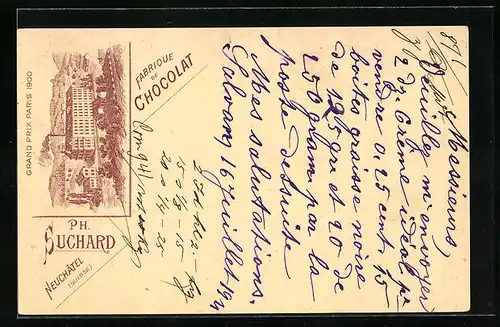 GRAND PRIX PARIS 1900
FABRIQUE
DE
CHOCOLAT
PH.
SUCHARD
NEUCHATEL
(SUISSE)
Messieurs,
Veuillez m'envoyer
2 dz. Creme idéal pr
vendre à 25 cent. 15
boites graisse noire
de 125 gr et 20 de
250 gram par la
poste de suite
Mes salutations.
Salvan, 16 juillet 19
150 1/8 - 15
200 1/4 - 25